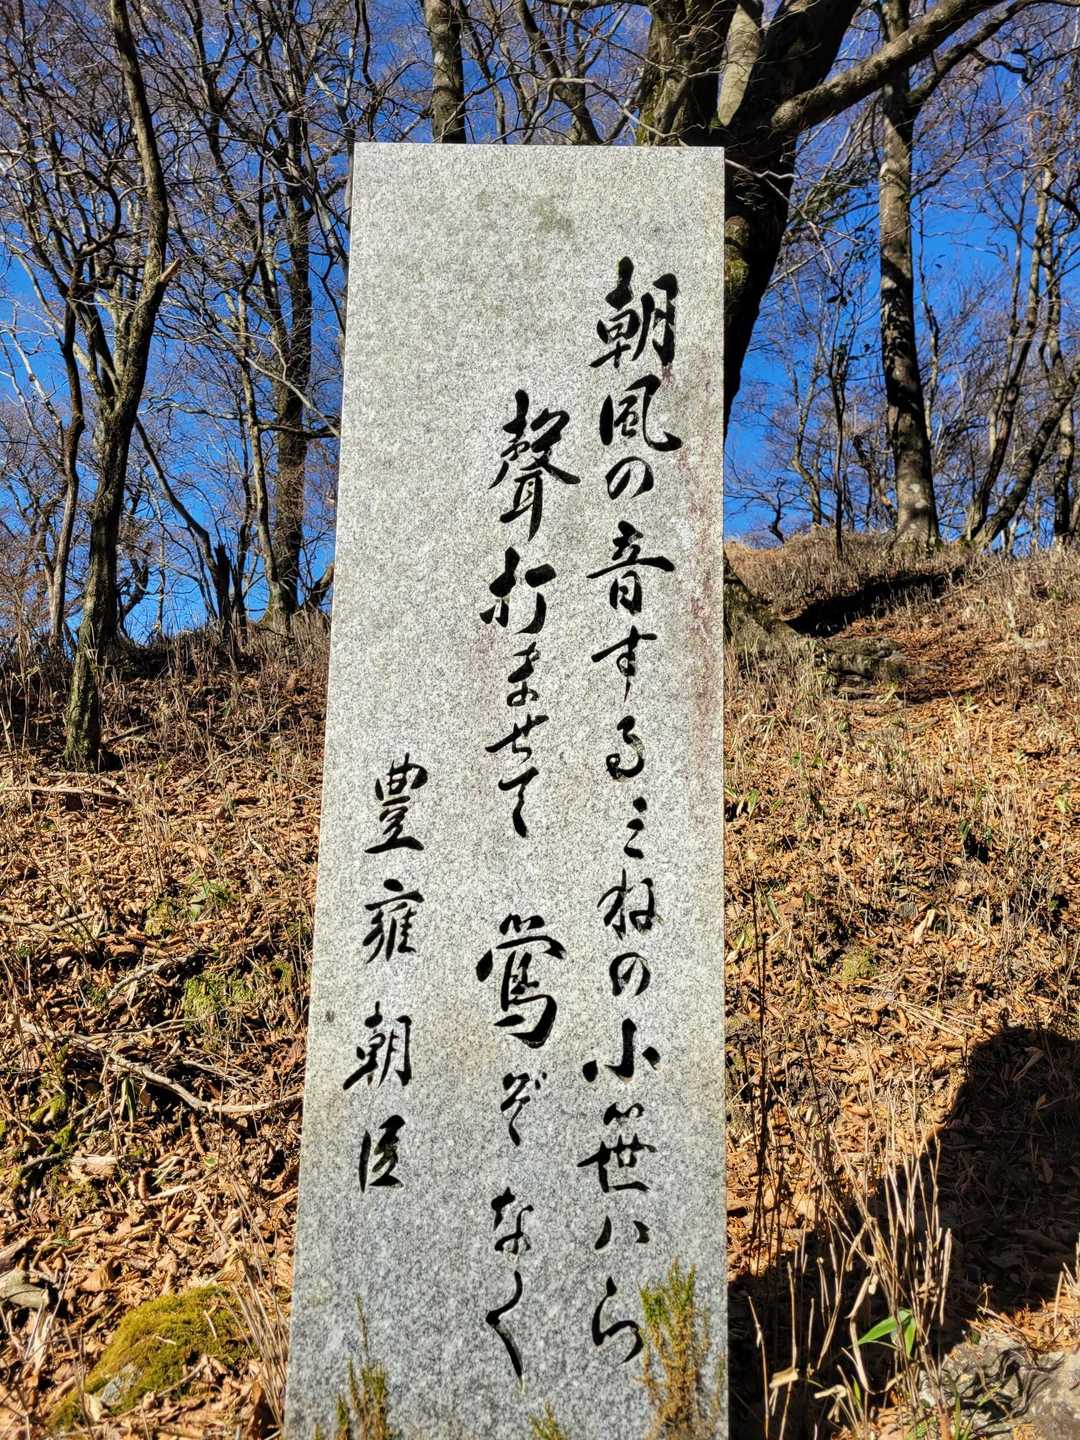 朝風の音する三ねの小笹ハら
聲打ませて鶯ぞなく
豊雍朝臣